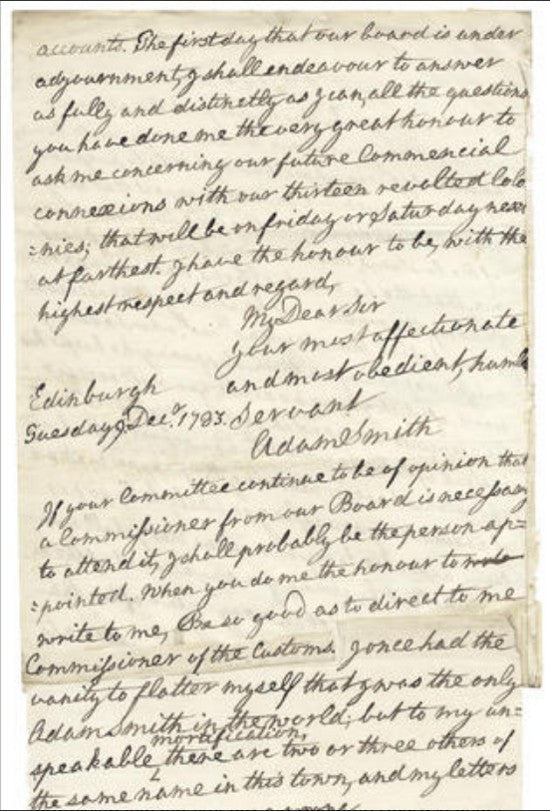 accounts. The first day that our board is under
adjournment, I shall endeavour to answer
as fully and distinctly as I can, all the questions
you have done me the very great honour to
ask me concerning our future Commercial
connexions with our thirteen revolted Colo
=nies; that will be on friday or Saturday next
at farthest. I have the honour to be, with the
highest respect and regard,
My Dear Sir
your most affectionate
and most obedient, humble
Edinburgh
Servant
Tuesday 9 Decr. 1783.
Adam Smith
If your Committee continue to be of opinion that
a Commissioner from our Board is necessary
to attend it, I shall probably be the person ap=
=pointed. When you do me the honour to
write to me, Be so good as to direct to me
Commissioner of the Customs. I once had the
vanity to flatter myself that I was the only
Adam Smith in the world; but to my un=
mortification,
speakable there are two or three others of
the same name in this town, and my letters